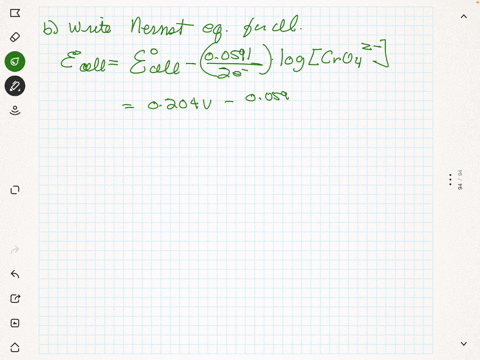 b) Write Nernst eq. for cell.
E°cell = E°cell - (0.0591/2e⁻) · log [CrO₄²⁻]
= 0.204V - 0.059
94 / 94